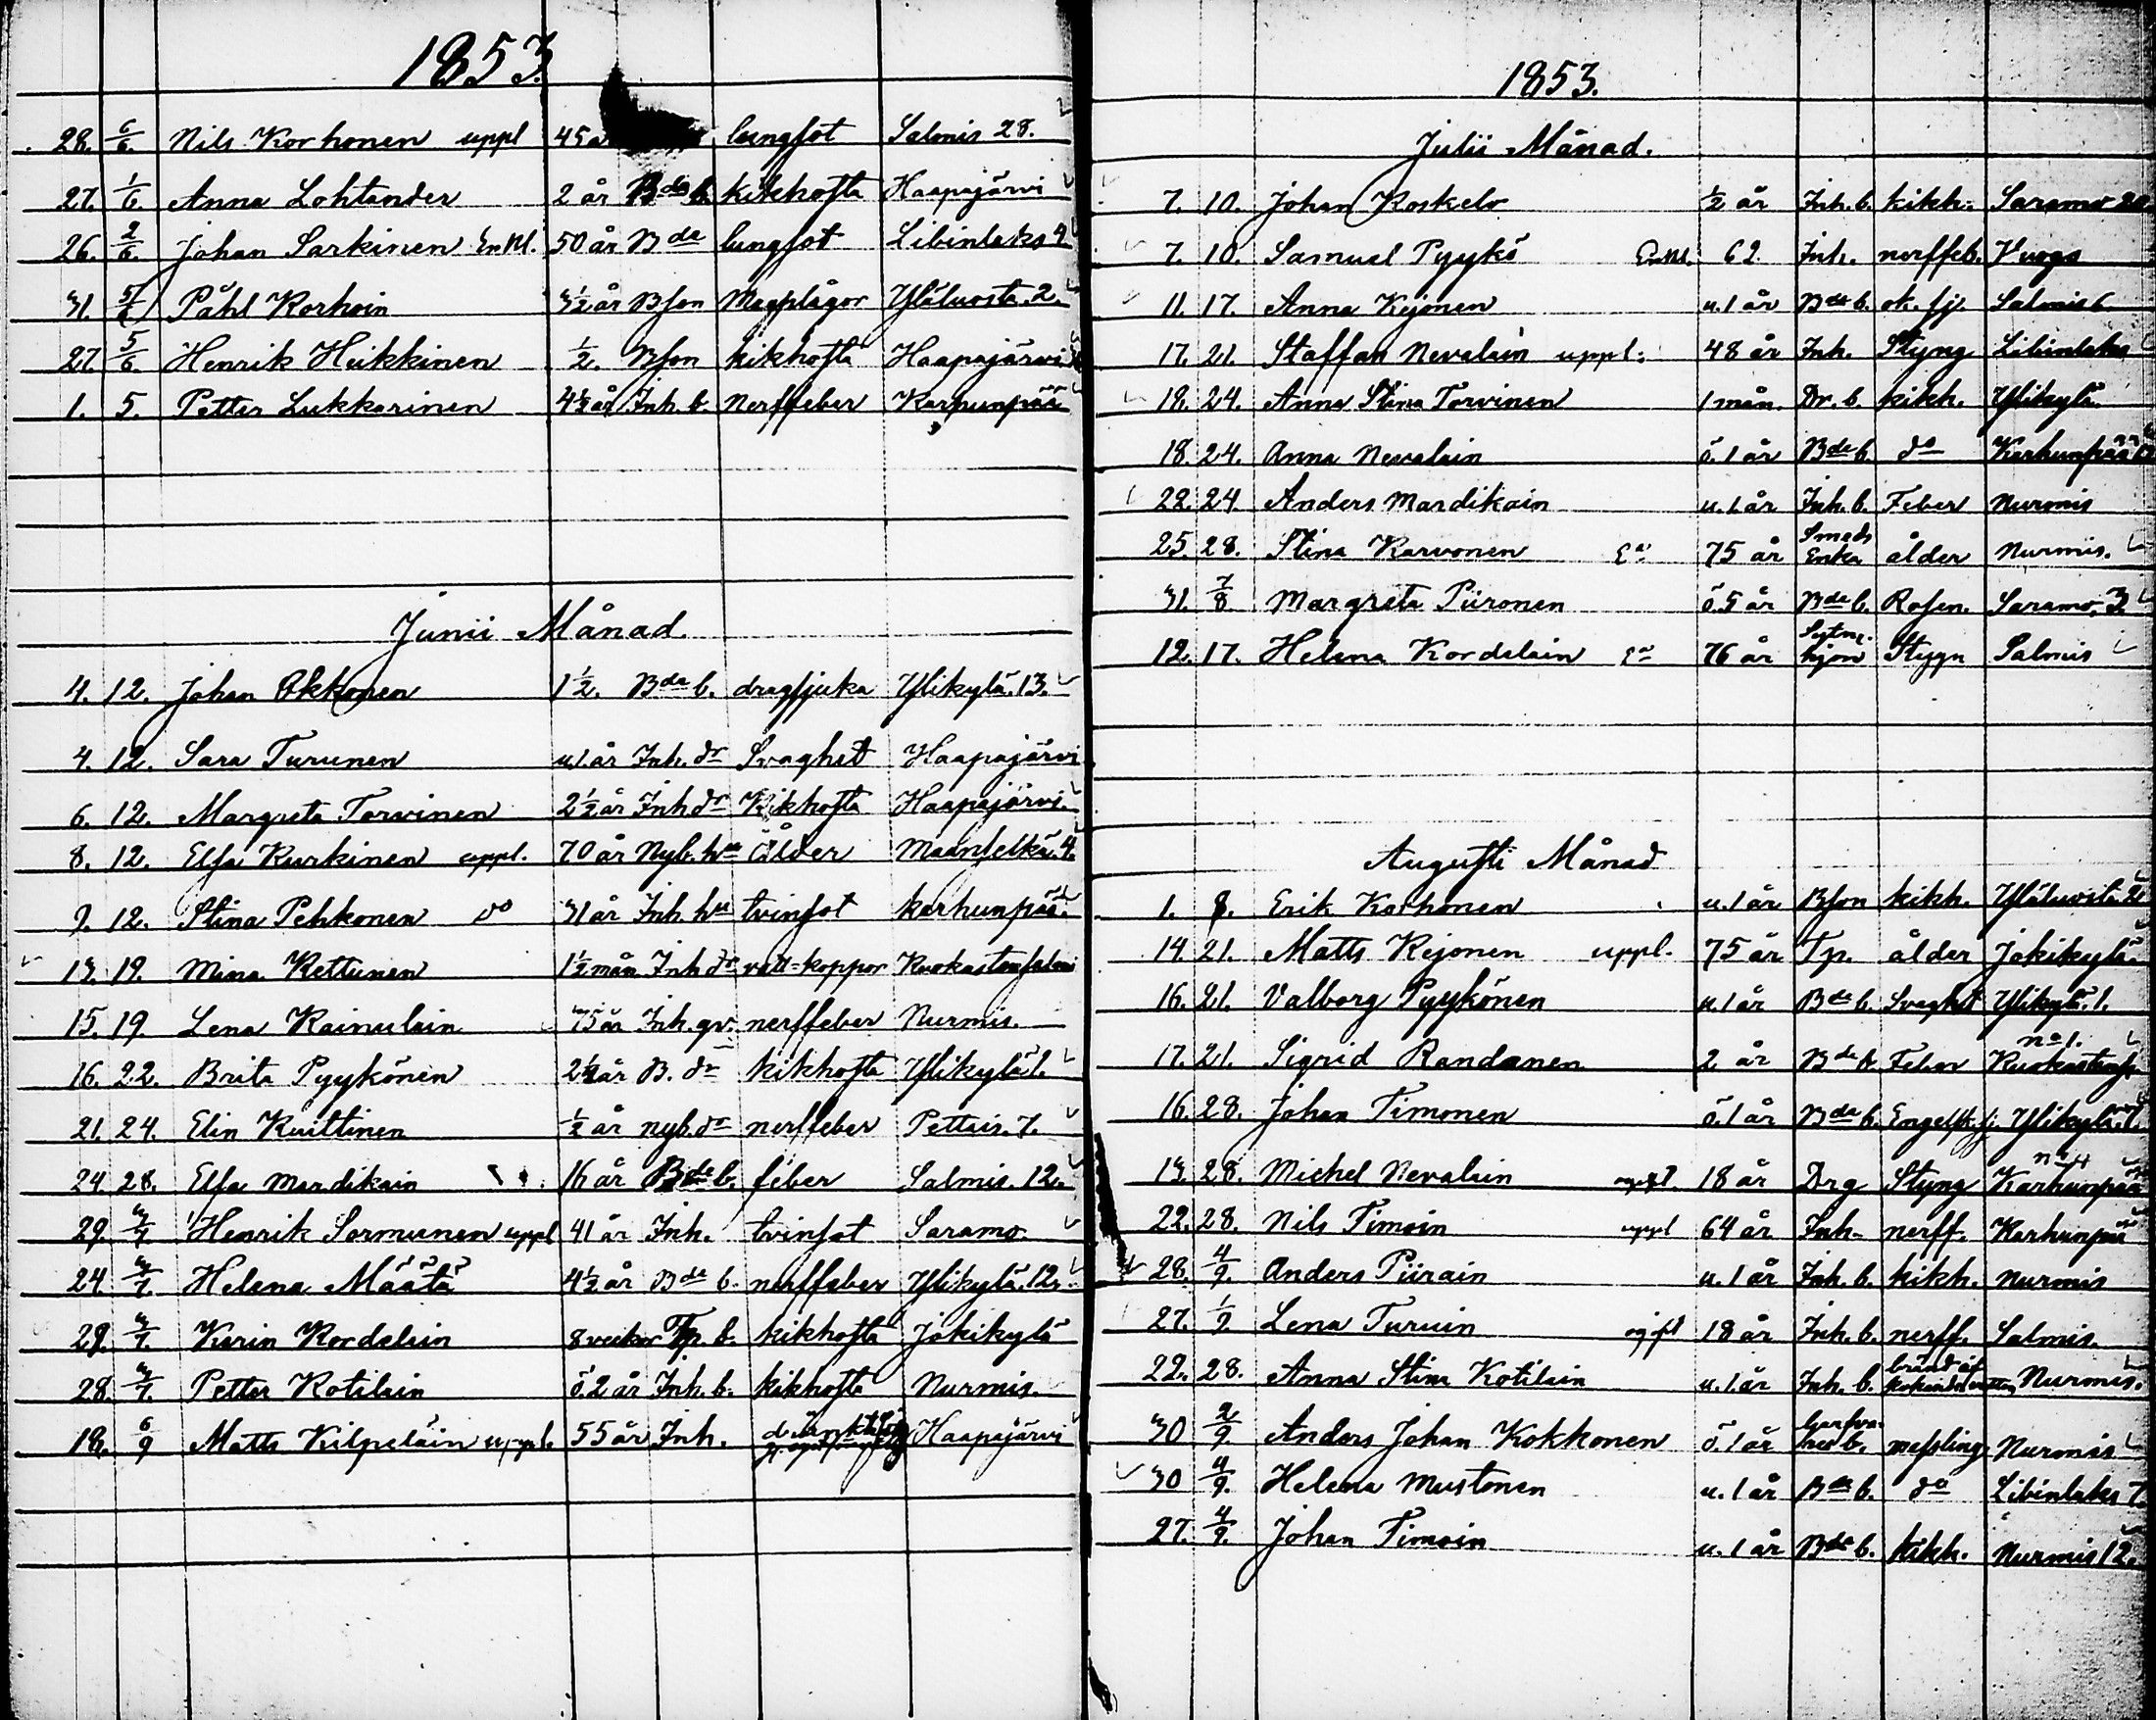 1853
28. 6/6. Nils Korhonen uppl 45 lungsot Salmis 28.
27. 1/6. Anna Lohtander 2 år Bde b. kikhosta Haapajärvi
26. 2/6. Johan Sarkinen Enkl. 50 år Bde lungsot Libinlaks 4
31. 5/6 Påhl Korhoin 3½ år Bson Magplågor Yläluosta. 2.
27. 5/6 Henrik Heikkinen ½. Bson kikhosta Haapajärvi
1. 5. Petter Lukkarinen 4½ år Inh. b. Nerffeber Karhunpää
Junii Månad.
4. 12. Johan Okkonen 1½. Bde b. dragsjuka Ylikylä. 13.
4. 12. Sara Turunen u. 1 år Inh. dr Svaghet Haapajärvi
6. 12. Margreta Torvinen 2½ år Inh dr Kikhosta Haapajärvi.
8. 12. Elsa Kurkinen uppl. 70 år Nyb. hu Ålder Maanselkä. 4.
9. 12. Stina Pehkonen do 31 år Inh. hu tvinsot karhunpää.
13. 19. Mina Kettunen 1½ mån Inh dr vatt-koppor Kuokastensalmi
15. 19. Lena Kainulain 75 år Inh. gv. nerffeber Nurmis.
16. 22. Brita Pyykönen 2½ år B. dr kikhosta Ylikylä 1.
21. 24. Elin Kuittinen ½ år nyb. dr nerffeber Pettais. 7.
24. 28. Elsa Mardikain 16 år Bde b. feber Salmis. 12.
29. 3/7 Henrik Sormunen uppl 41 år Inh. tvinsot Saramo.
24. 3/7. Helena Määtä 4½ år Bde b. nerffeber Ylikylä. 12.
29. 3/7. Karin Kordelain 8 veckor Tp. b. kikhosta Jokikylä
28. 3/7. Petter Kotilain ö. 2 år Inh. b. kikhosta Nurmis.
18. 6/9 Matts Kilpeläin uppl. 55 år Inh. Haapajärvi
1853.
Julii Månad.
7. 10. Johan Koskelo ½ år Inh. b. kikh. Saramo 20
7. 10. Samuel Pyykö Enkl. 62. Inh. nerffeb. Kuoga
11. 17. Anna Kejonen u. 1 år Bde b. ok. sj. Salmis 6
17. 21. Staffan Nevalain uppl. 48 år Inh. Styng Libinlaks
18. 24. Anna Stina Torvinen 1 mån. Dr. b. kikh. Ylikylä.
18. 24. Anna Nevalain ö. 1 år Bde b. do Karhunpää
22. 24. Anders Mardikain u. 1 år Inh. b. Feber Nurmis
25 28. Stina Karvonen Ea 75 år Smeds Enka ålder Nurmis.
31. 7/8 Margreta Piironen ö. 5 år Bde b. Rosen. Saramo, 3
12. 17. Helena Kordelain Ea 76 år Sytn. hjon Stygn Salmis
Augusti Månad
1. 8. Erik Korhonen u. 1 år Bson kikh. Yläluosta. 2
14. 21. Matts Kejonen uppl. 75 år Tp. ålder Jokikylä.
16. 21. Valborg Pyykönen u. 1 år Bde b. Svaghet Ylikylä. 1.
17. 21. Sigrid Randanen 2 år Bde b. Feber no 1. Kuokastensal
16. 28. Johan Timonen ö. 1 år Bde b. Engelsk. sj. Ylikylä. 1.
13. 28. Michel Nevalain uppl. 18 år Drg Styng no 4 Karhunpää
22. 28. Nils Timoin uppl 64 år Inh. nerff. Karhunpää
28. 4/9. Anders Piirain u. 1 år Inh. b. kikh. Nurmis
27. 1/9. Lena Turuin ogift 18 år Inh. b. nerff. Salmis.
22. 28. Anna Stina Kotilain u. 1 år Inh. b. bränd af kokande vatten Nurmis.
30 2/9. Anders Johan Kokkonen ö. 1 år Garfva- b. messling Nurmis
30 4/9. Helena Mustonen u. 1 år Bde b. do Libinlaks 7.
27. 4/9. Johan Timoin u. 1 år Bde b. kikh. Nurmis 12.